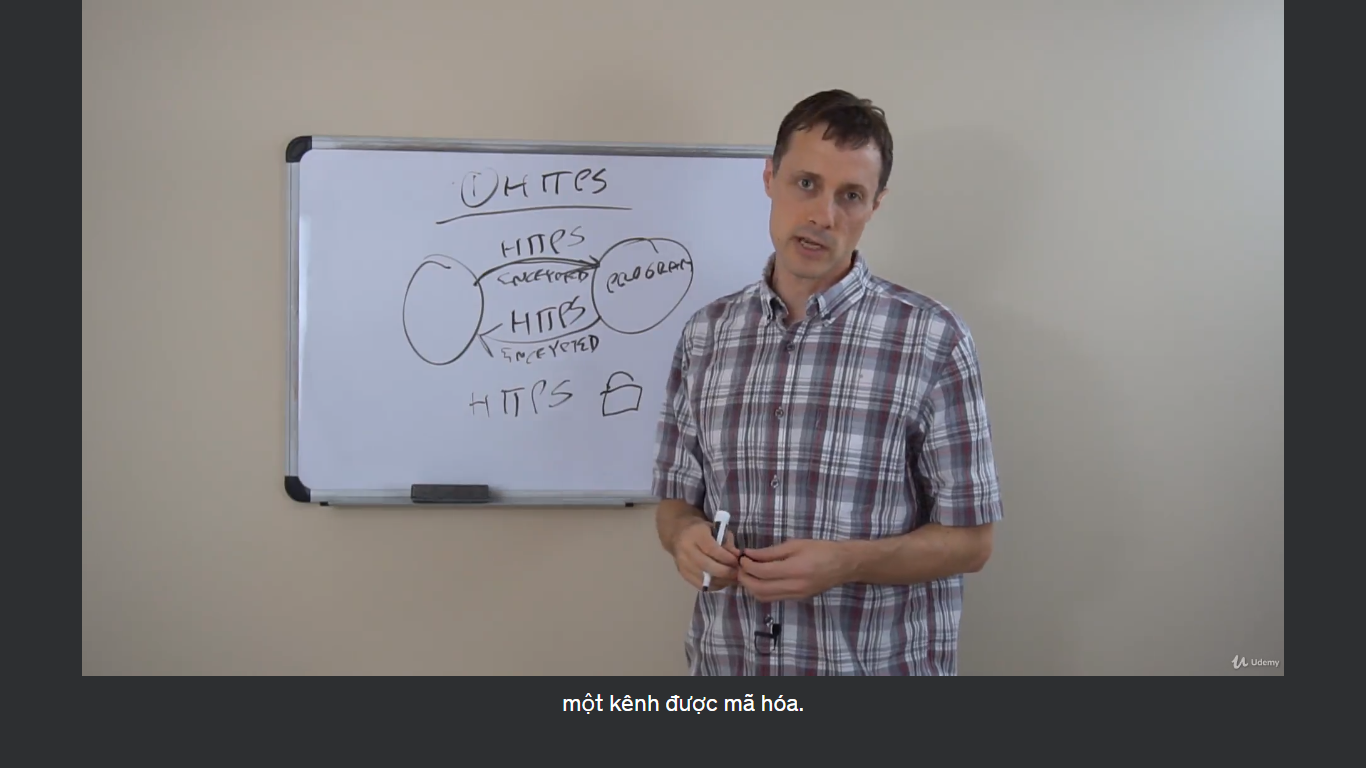 ① HTTPS
HTTPS
ENCRYPTED
PROGRAM
HTTPS
ENCRYPTED
HTTPS
Udemy
một kênh được mã hóa.